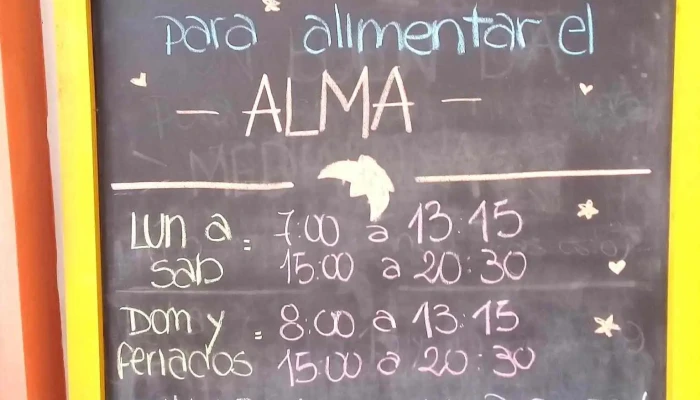 para alimentar el
- ALMA -
Lun a = 7:00 a 13:15
sab 15:00 a 20:30
Dom y = 8:00 a 13:15
feriados 15:00 a 20:30